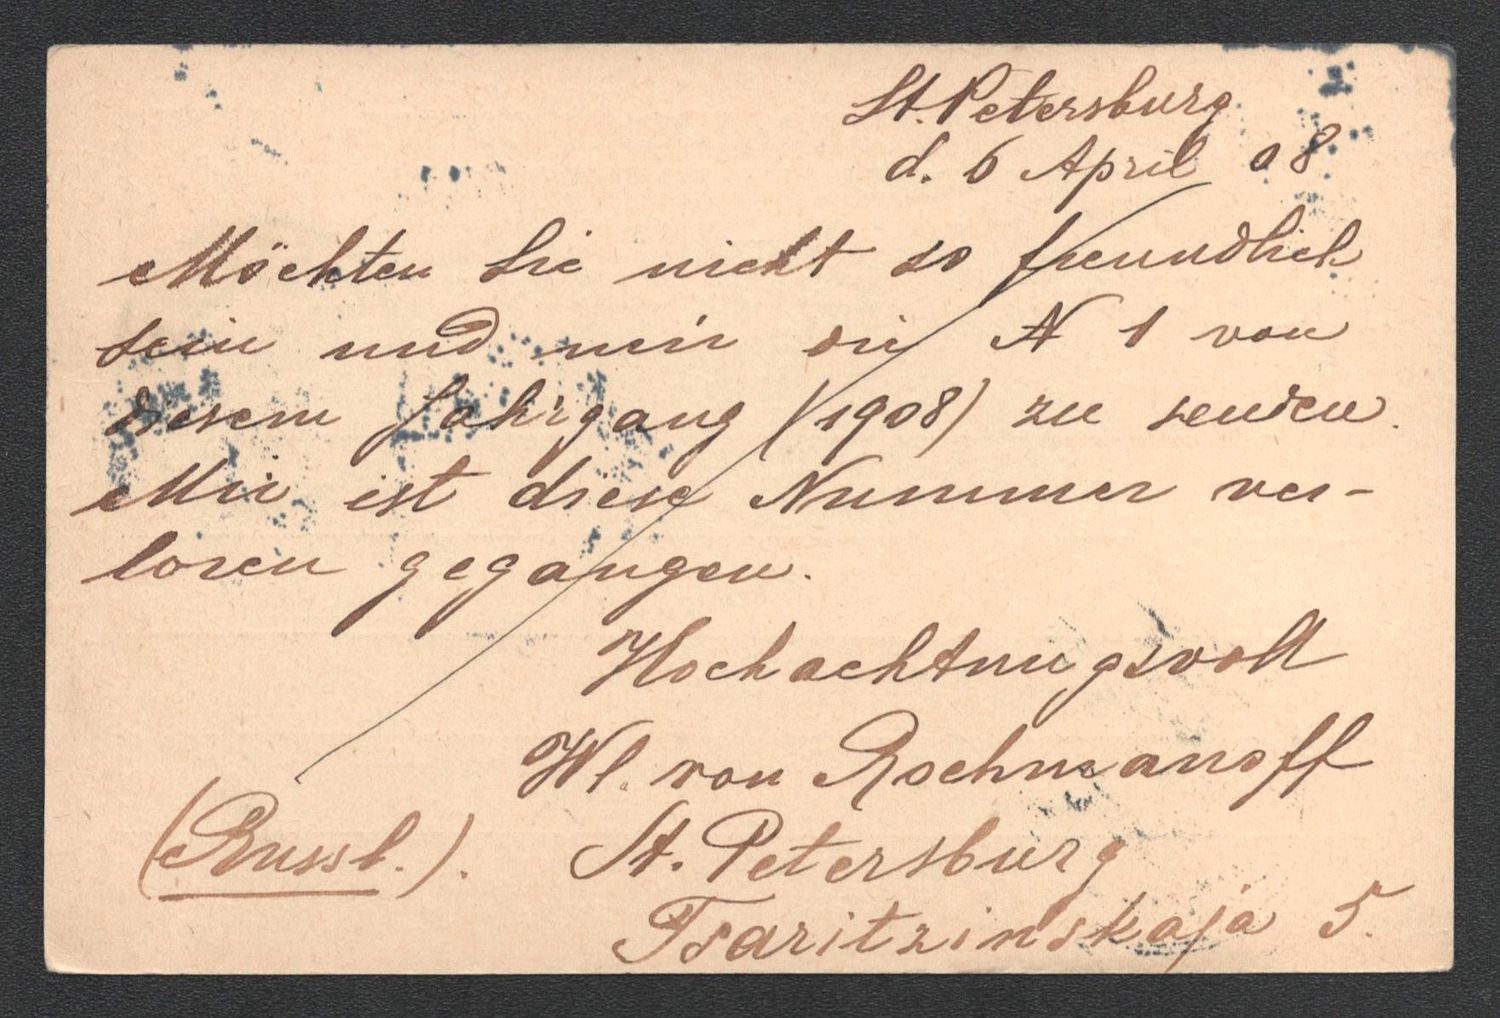 St. Petersburg
d. 6 April 08
Möchten Sie nicht so freundlich
sein und mir die N 1 von
diesem Jahrgang (1908) zu senden.
Mir ist diese Nummer ver-
loren gegangen.
Hochachtungsvoll
Wl. von Rochmanoff
(Russl.). St. Petersburg
Tsaritzinskaja 5.